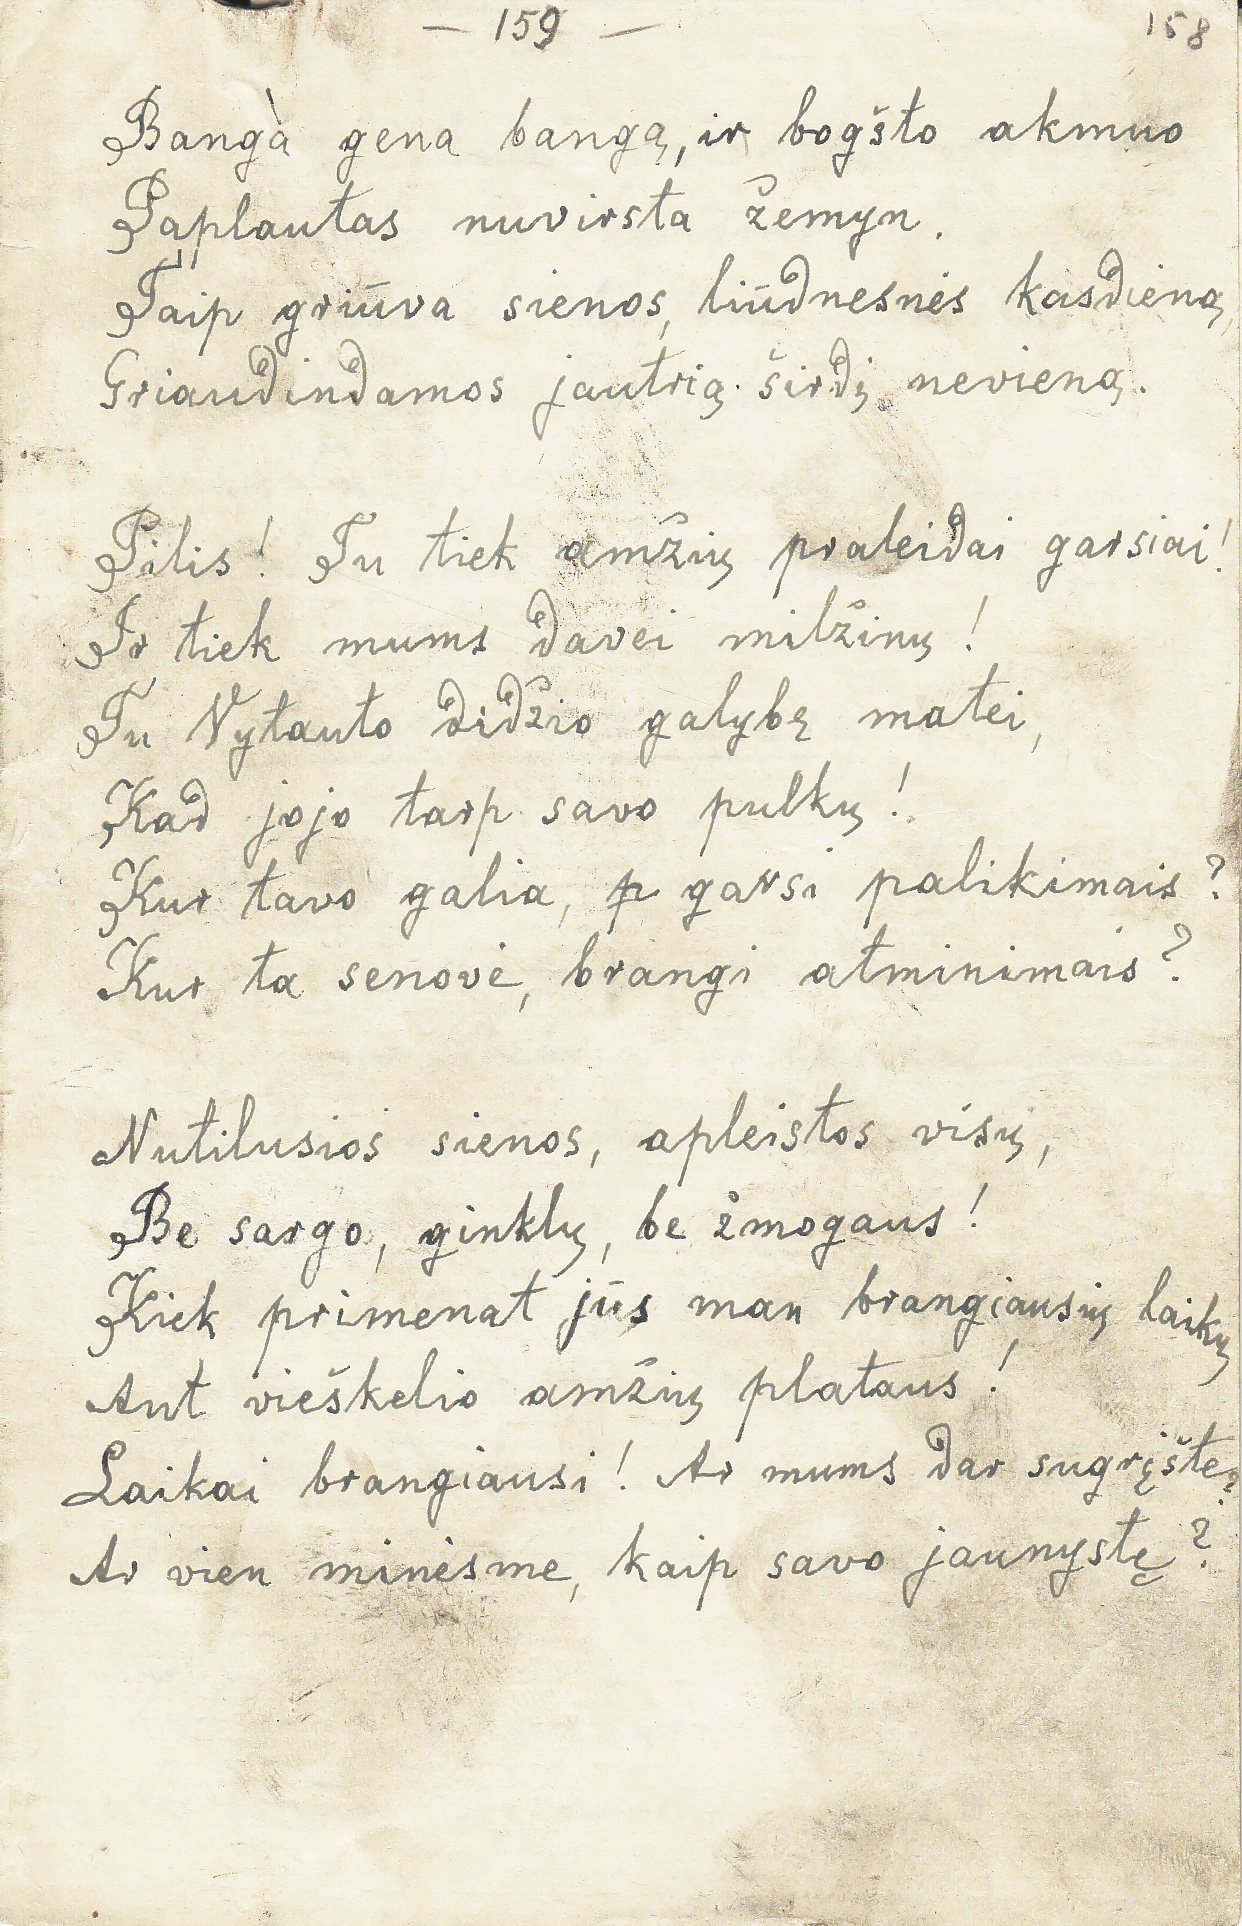 — 159 —
158
Bangà gena bangą, ir bogšto akmuo
Paplautas nuvirsta žemyn.
Taip griūva sienos, liūdnesnės kasdieną,
Griaudindamos jautrią širdį nevieną.
Pilis! Tu tiek amžių praleidai garsiai!
Ir tiek mums davei milžinų!
Tu Vytauto didžio galybę matei,
Kad jojo tarp savo pulkų!
Kur tavo galia, p garsi palikimais?
Kur ta senovė, brangi atminimais?
Nutilusios sienos, apleistos visų,
Be sargo, ginklų, be žmogaus!
Kiek primenat jūs man brangiausių laikų
Ant vieškelio amžių plataus!
Laikai brangiausi! Ar mums dar sugrįšte?
Ar vien minėsme, kaip savo jaunystę?